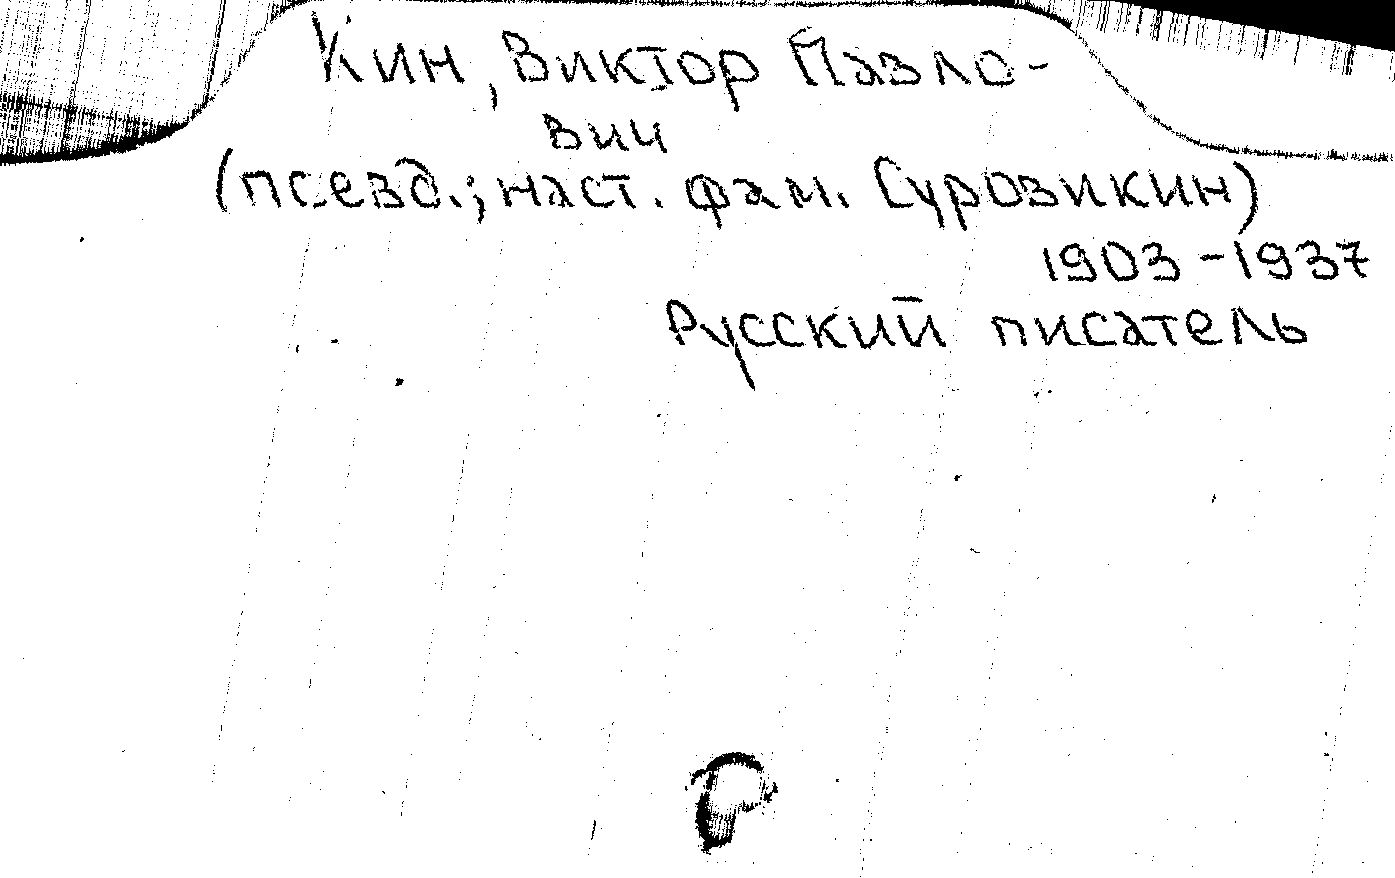 Кин, Виктор Павло-
вич
(псевд.; наст. фам. Суровикин)
1903-1937
Русский писатель